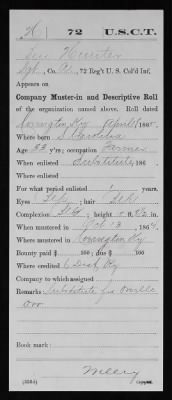 H | 72 | U.S.C.T.
Hunter
Co. , 72 Reg't U. S. Col'd Inf.
Appears on
Company Muster-in and Descriptive Roll
of the organization named above. Roll dated
Covington, Ky April , 1865.
Where born S. Carolina
Age 23 y'rs; occupation Farmer
When enlisted Substitute, 186
Where enlisted
For what period enlisted 1 years.
Eyes ; hair
Complexion ; height ft. in.
When mustered in Oct 13, 186
Where mustered in Covington Ky
Bounty paid $ 100; due $ 100
Where credited 6 Dist. Ky
Company to which assigned
Remarks: Substitute for Orville
Orr
Book mark:
(356d) Copyist.